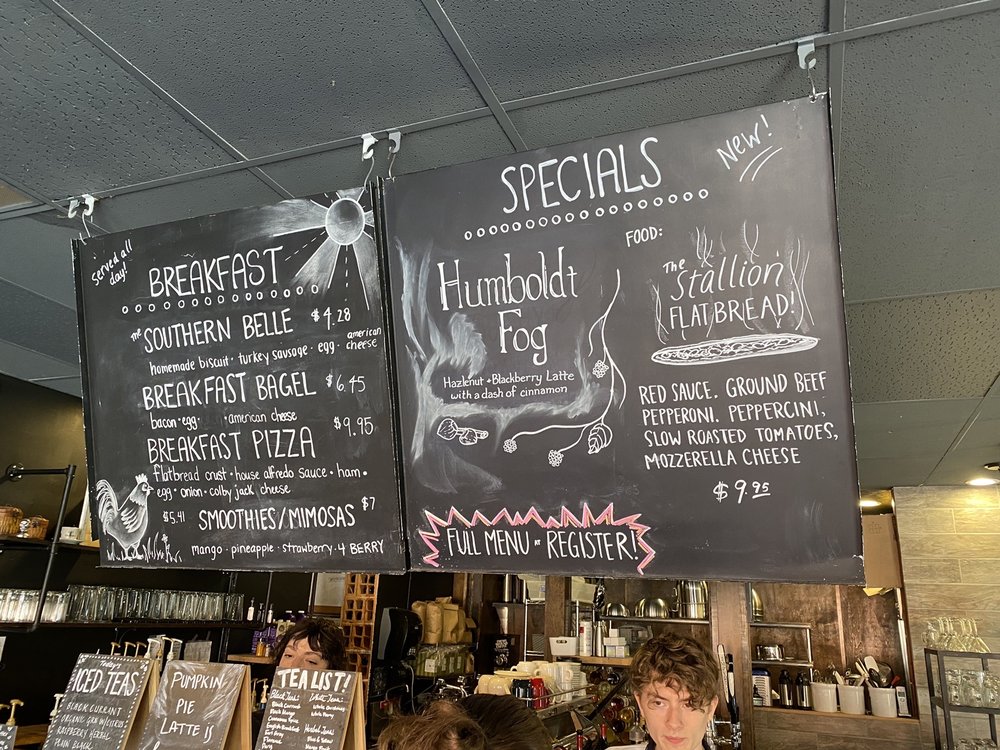 Served all
day!
BREAKFAST
The SOUTHERN BELLE $4.28
homemade biscuit · turkey sausage · egg · american cheese
BREAKFAST BAGEL $6.45
bacon · egg · american cheese
BREAKFAST PIZZA $9.95
flatbread crust · house alfredo sauce · ham ·
egg · onion · colby jack cheese
$5.41 SMOOTHIES/MIMOSAS $7
mango · pineapple · strawberry · 4 BERRY
SPECIALS
New!
Humboldt
Fog
Hazlenut + Blackberry Latte
with a dash of cinnamon
FOOD:
The
Stallion
FLATBREAD!
RED SAUCE, GROUND BEEF
PEPPERONI, PEPPERCINI,
SLOW ROASTED TOMATOES,
MOZZERELLA CHEESE
$9.95
FULL MENU AT REGISTER!
Today's
ICED TEAS
BLACK CURRANT
ORGANIC GRN W/CITRUS
RASPBERRY HERBAL
PLAIN BLACK
PUMPKIN
PIE
LATTE is
TEA LIST!